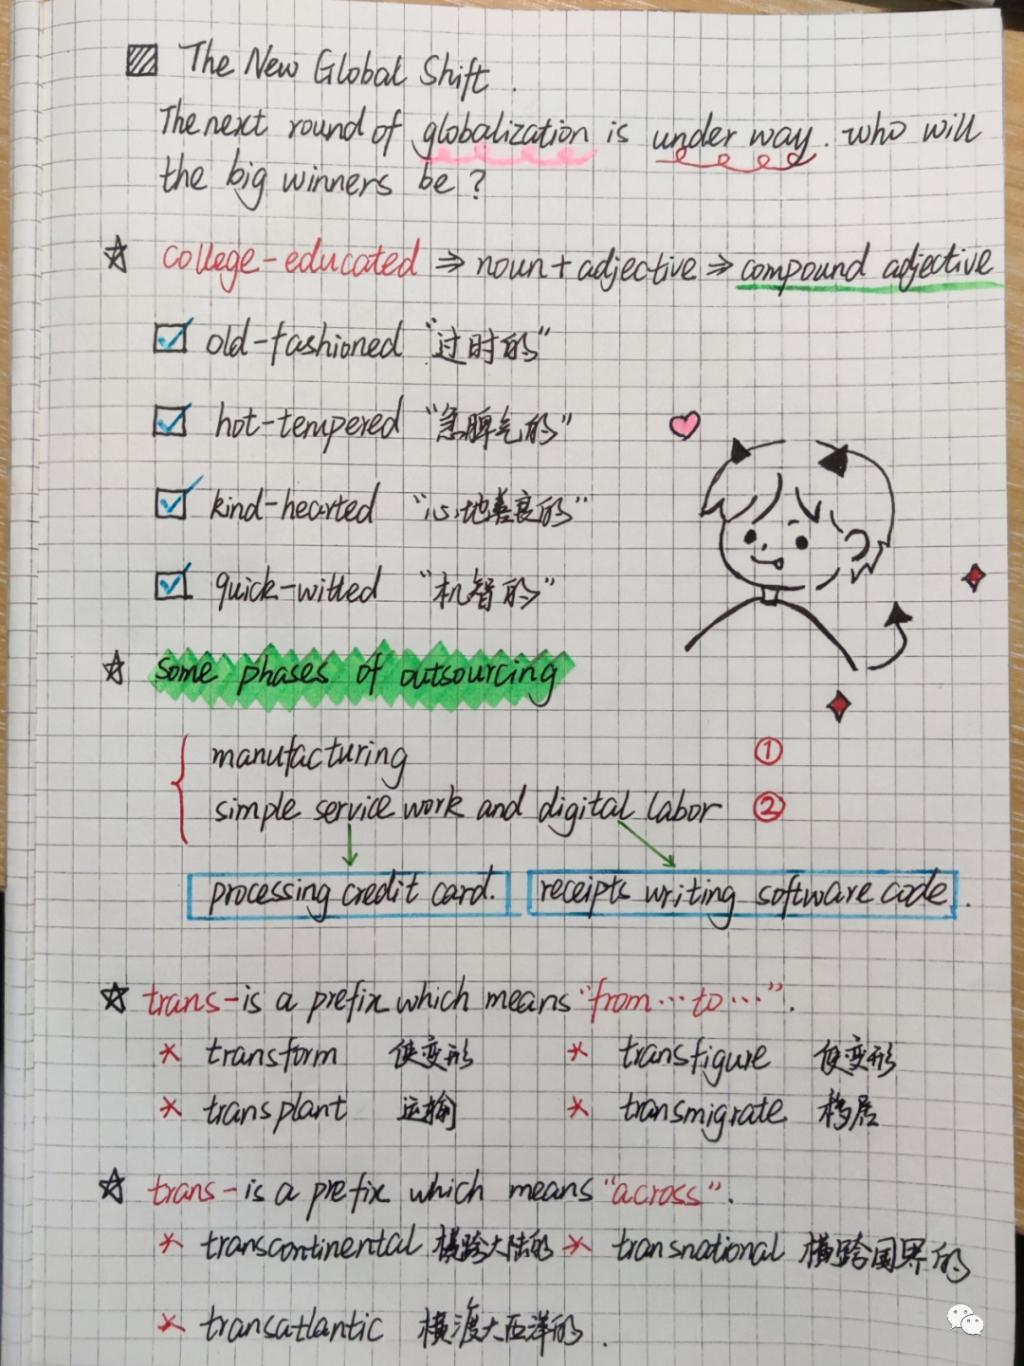 The New Global Shift.
The next round of globalization is under way. who will
the big winners be?
☆ college-educated ⇒ noun + adjective ⇒ compound adjective
☑ old-fashioned “过时的”
☑ hot-tempered “急脾气的”
☑ kind-hearted “心地善良的”
☑ quick-witted “机智的”
☆ some phases of outsourcing
manufacturing ①
simple service work and digital labor ②
processing credit card. receipts writing software code.
☆ trans- is a prefix which means “from…to…”.
* transform 使变形 * transfigure 使变形
* transplant 运输 * transmigrate 移居
☆ trans- is a prefix which means “across”.
* transcontinental 横跨大陆的 * transnational 横跨国界的
* transatlantic 横渡大西洋的.